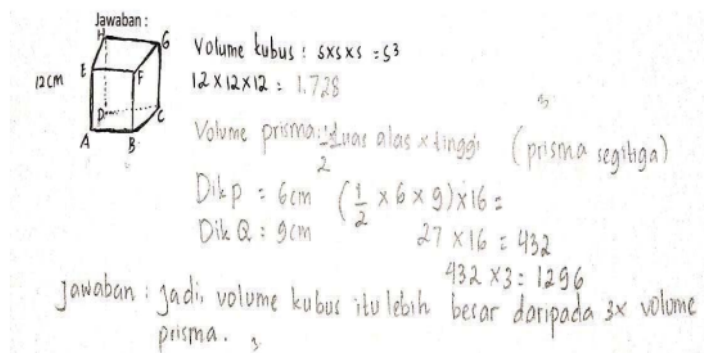 Jawaban :
H
G
E
F
12cm
D
C
A
B
Volume kubus : sxsxs = s³
12 x 12 x 12 = 1.728
Volume prisma : luas alas x tinggi (prisma segitiga)
2
Dik P = 6cm (1/2 x 6 x 9) x 16 =
Dik Q = 9cm 27 x 16 = 432
432 x 3 = 1296
Jawaban : Jadi, volume kubus itu lebih besar daripada 3x volume
prisma.